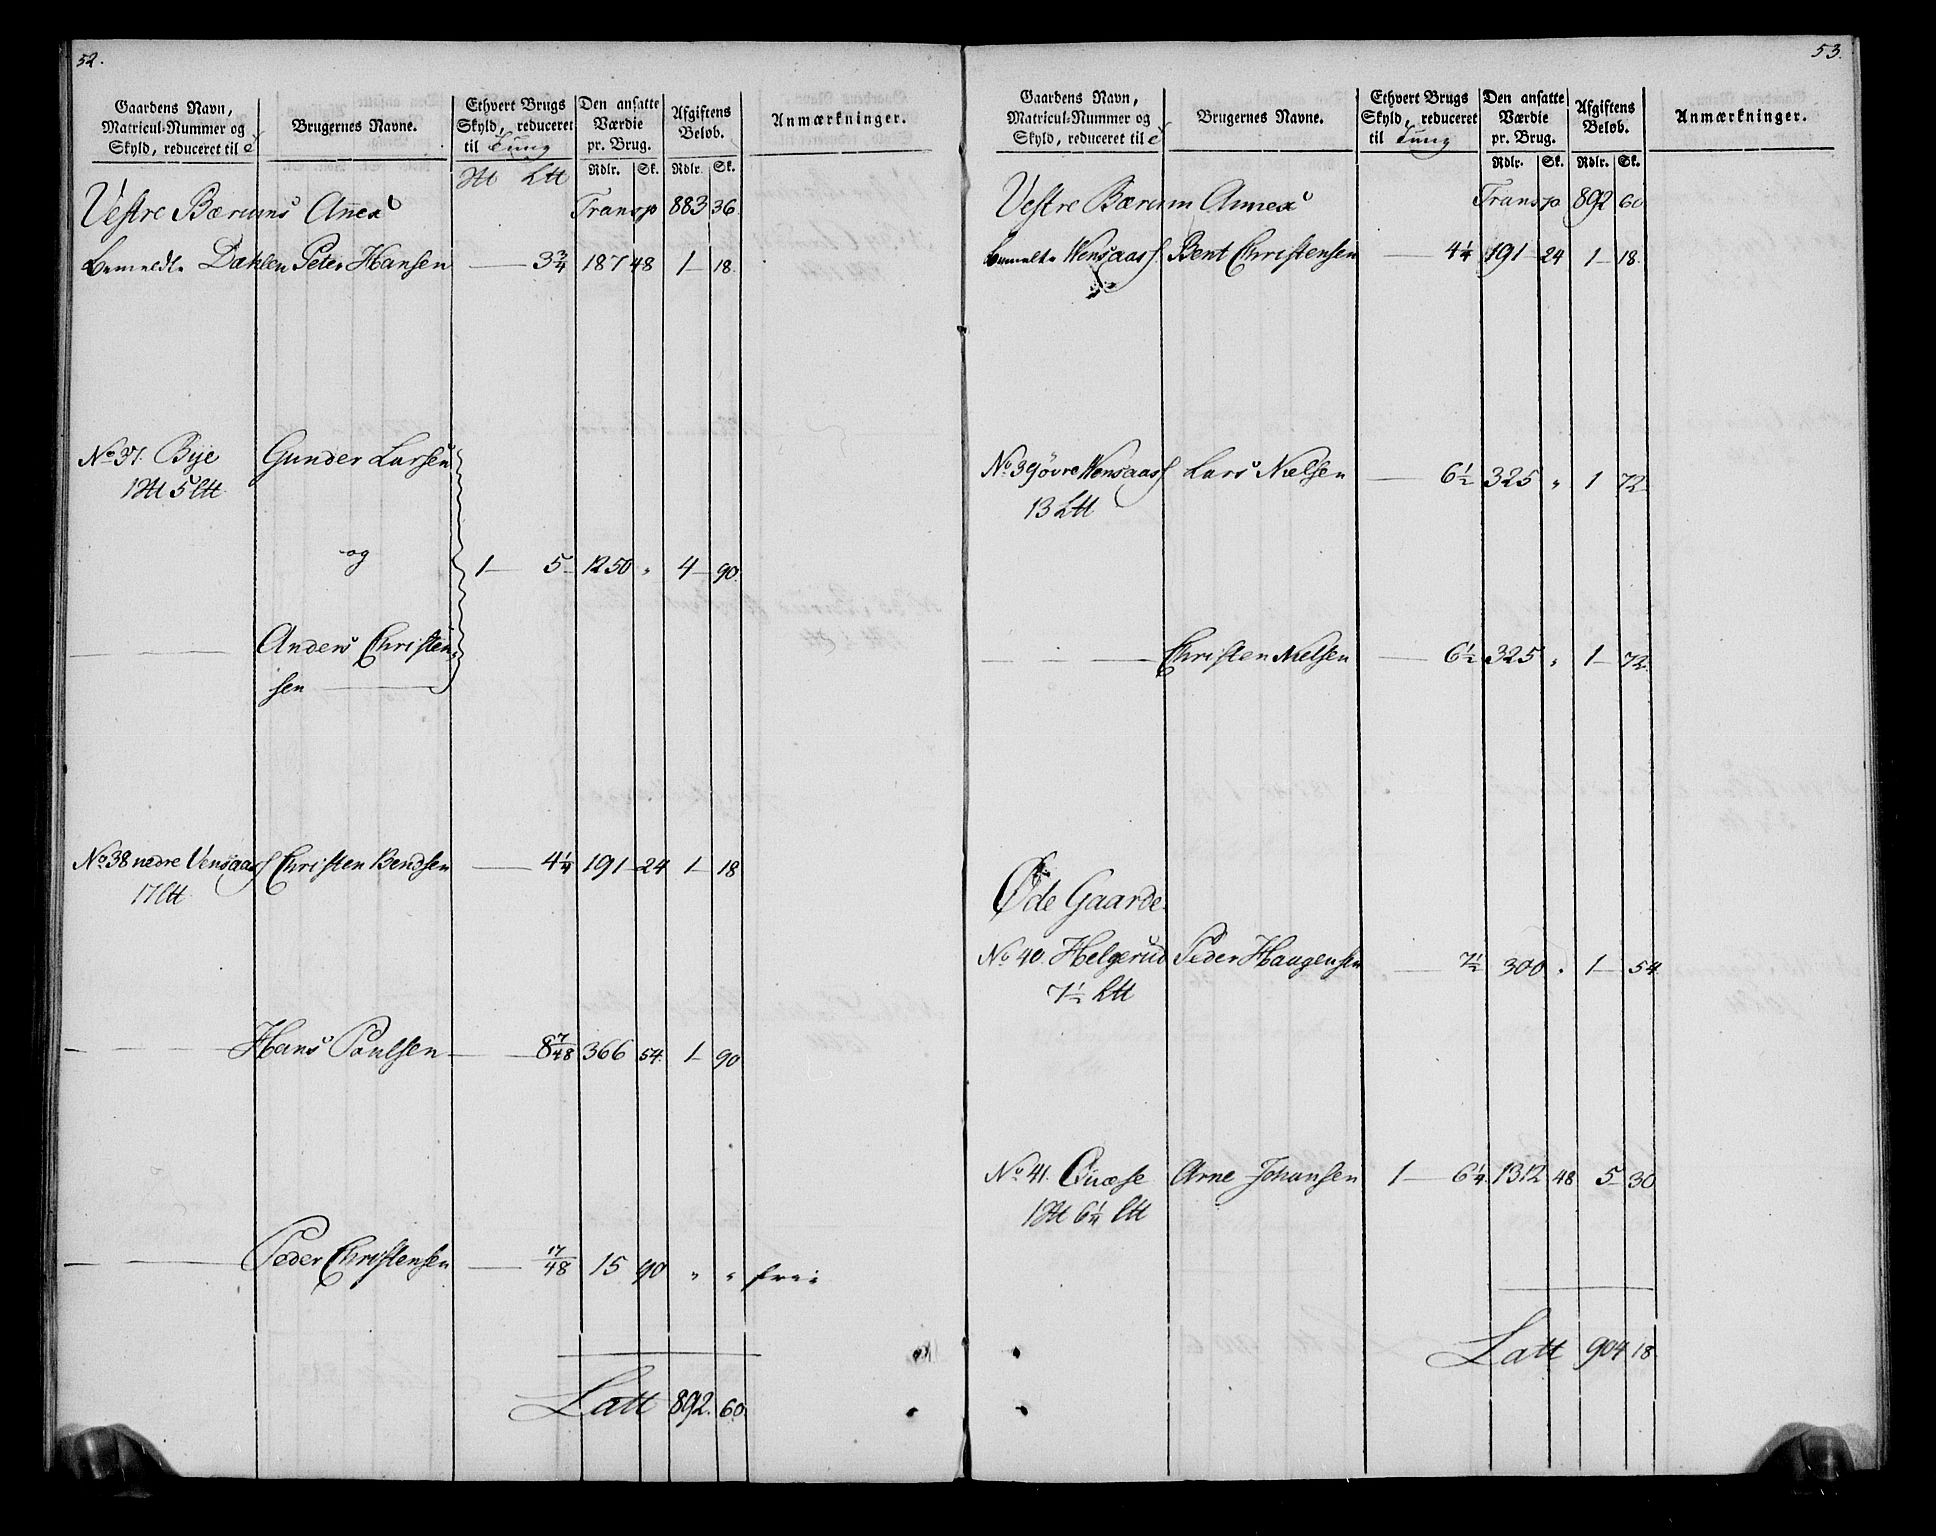 52.
Gaardens Navn, Matricul-Nummer og Skyld, reduceret til
Brugernes Navne.
Ethvert Brugs Skyld, reduceret til Tung
Den ansatte Værdie pr. Brug.
Afgiftens Beløb.
Anmærkninger.
Rdlr. Sk. Rdlr. Sk.
Vestre Bærums Anex Transp 883 36.
bemeldte Dæhlen Peter Hansen — 3 3/4 187 48 1 — 18.
No 37. Bye Gunder Larsen
1 5
og 1 — 5 — 1250 " 4 — 90.
— — Anders Christen-
sen —
No 38 nedre Vensaas Christen Bendsen — 4 1/4 191 — 24 1 — 18
17
— — Hans Poulsen — 8 7/48 366 54. 1 — 90
— — Peder Christensen — 17/48 15 90 " " frie
Latt 892. 60.
53.
Gaardens Navn, Matricul-Nummer og Skyld, reduceret til
Brugernes Navne.
Ethvert Brugs Skyld, reduceret til Tung
Den ansatte Værdie pr. Brug.
Afgiftens Beløb.
Anmærkninger.
Rdlr. Sk. Rdlr. Sk.
Vestre Bærum Annex Transp 892 60
Wensaas Bent Christensen — 4 1/4 191 — 24 1 — 18.
No 39 øvre Wensaas Lars Nielsen — 6 1/2 325 " 1 72
13
— — Christen Nielsen — 6 1/2 325 " 1 — 72.
Øde Gaarde.
No 40. Helgerud Peder Haugensen — 7 1/2 300 " 1 — 54.
7 1/2
No 41. Qvæse Arne Johansen 1 — 6 1/4. 1312 48 5 — 30
1 6 1/4
Latt 904 18.